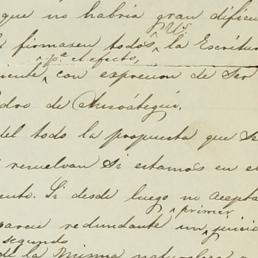 que no habria gran dificu
Uds
si firmasen todos, la Escritu
pª el efecto,
iente, con expresion de Ser
edro de Amoátegui.
del todo la propuesta que Se
i resuelvan Si estamos en e
ento. Si desde luego no acepta
primer
pareceu redundante un juicio
segundo
de la misma naturaleza